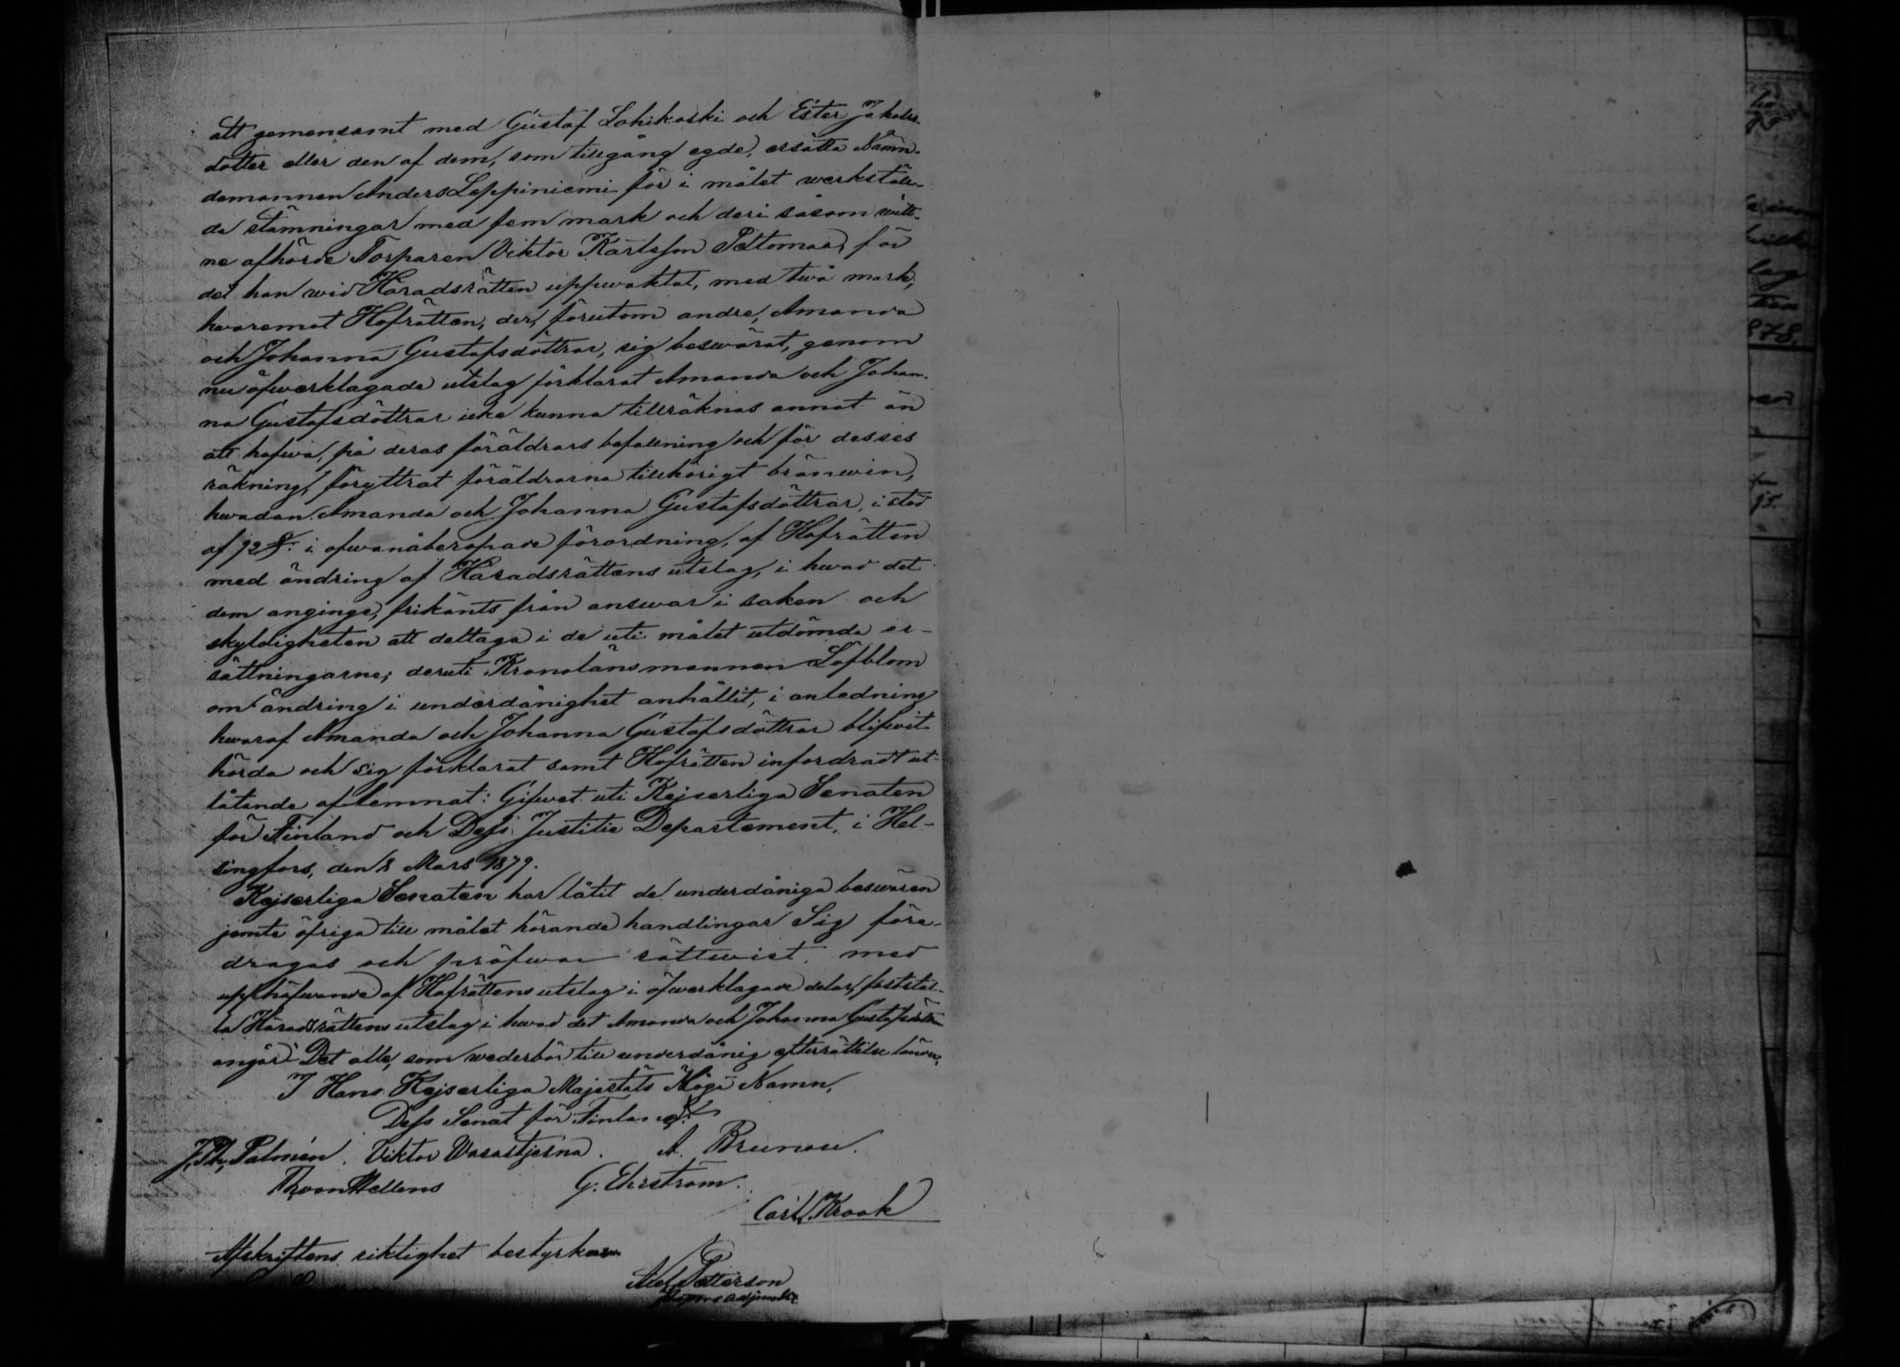 att gemensamt med Gustaf Lohikoski och Ester Jakobs-
dotter eller den af dem, som tillgång egde, ersätta Nämn-
demannen Anders Leppiniemi för i målet werkstäl-
da stämningar med fem mark och deri såsom witt-
ne afhörde Torparen Viktor Karlsson Peltomaa, för
det han wid Häradsrätten uppwaktat, med twå mark;
hwaremot Hofrätten, der, förutom andre, Amanda
och Johanna Gustafsdöttrar, sig beswärat, genom
nu öfwerklagade utslag förklarat Amanda och Johan-
na Gustafsdöttrar icke kunna tillräknas annat än
att hafwa, på deras föräldrars befallning och för desses
räkning, föryttrat föräldrarna tillhörigt bränwin,
hwadan Amanda och Johanna Gustafsdöttrar, i stöd
af 12 §. i ofwanåberopade förordning, af Hofrätten
med ändring af Häradsrättens utslag, i hwad det
dem anginge, frikänts från answar i saken och
skyldigheten att deltaga i de uti målet utdömda er-
sättningarne; deruti Kronolänsmannen Löfblom
om ändring i underdånighet anhållit, i anledning
hwaraf Amanda och Johanna Gustafsdöttrar blifwit
hörda och sig förklarat samt Hofrätten infordradt ut-
låtande aflemnat: Gifwet uti Kejserliga Senaten
för Finland och Dess Justitie Departement, i Hel-
singfors, den 8 Mars 1879.
Kejserliga Senaten har låtit de underdåniga beswären
jemte öfriga till målet hörande handlingar Sig före-
dragas och pröfwar rättwist, med
upphäfwande af Hofrättens utslag i öfwerklagade delar, faststäl-
la Häradsrättens utslag i hwad det Amanda och Johanna Gustafsdöttrar
angår. Det alle, som wederbör till underdånig efterrättelse länder.
I Hans Kejserliga Majestäts Höga Namn,
Dess Senat för Finland:
J. Ph. Palmén. Viktor Wasastjerna. A. Bruneu.
Th von Hellens G. Ehrström.
Carl Krook
Afskriftens riktighet bestyrker
Axel Petterson
adjunkt